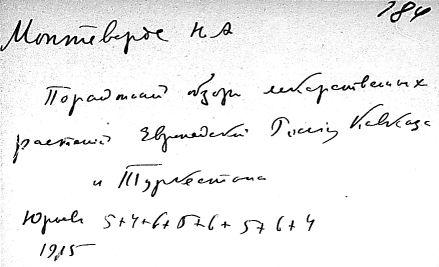 184
Монтеверде Н А
Порайонный обзор лекарственных
растений Европейской России, Кавказа
и Туркестана
Юрьев 5+4+6+8+6+5+6+4
1915